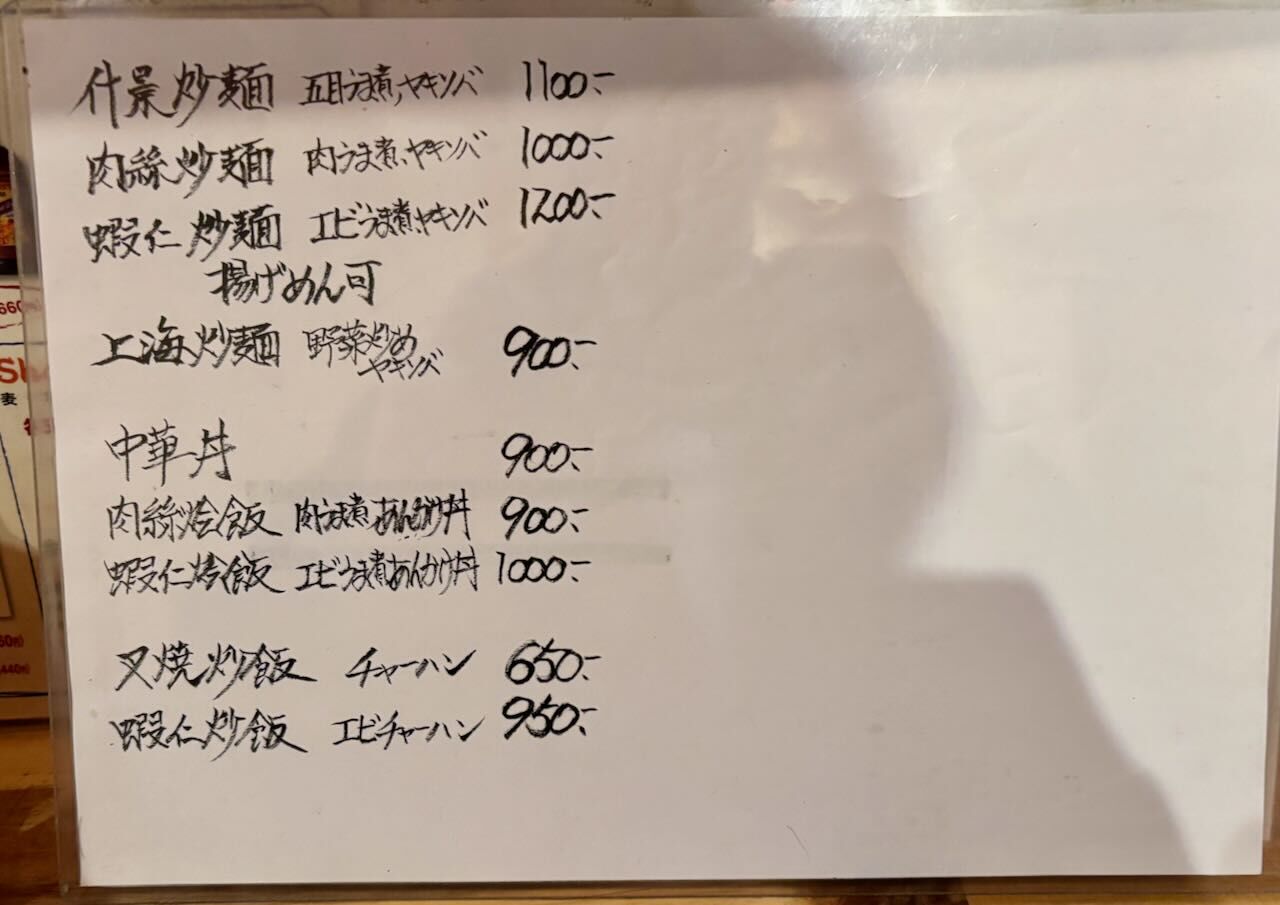 什景炒麺 五目うま煮ヤキソバ 1100.-
肉絲炒麺 肉うま煮ヤキソバ 1000.-
蝦仁炒麺 エビうま煮ヤキソバ 1200.-
揚げめん可
上海炒麺 野菜炒め 900.-
ヤキソバ
中華丼 900.-
肉絲烩飯 肉うま煮あんかけ丼 900.-
蝦仁烩飯 エビうま煮あんかけ丼 1000.-
叉焼炒飯 チャーハン 650.-
蝦仁炒飯 エビチャーハン 950.-
660
麦